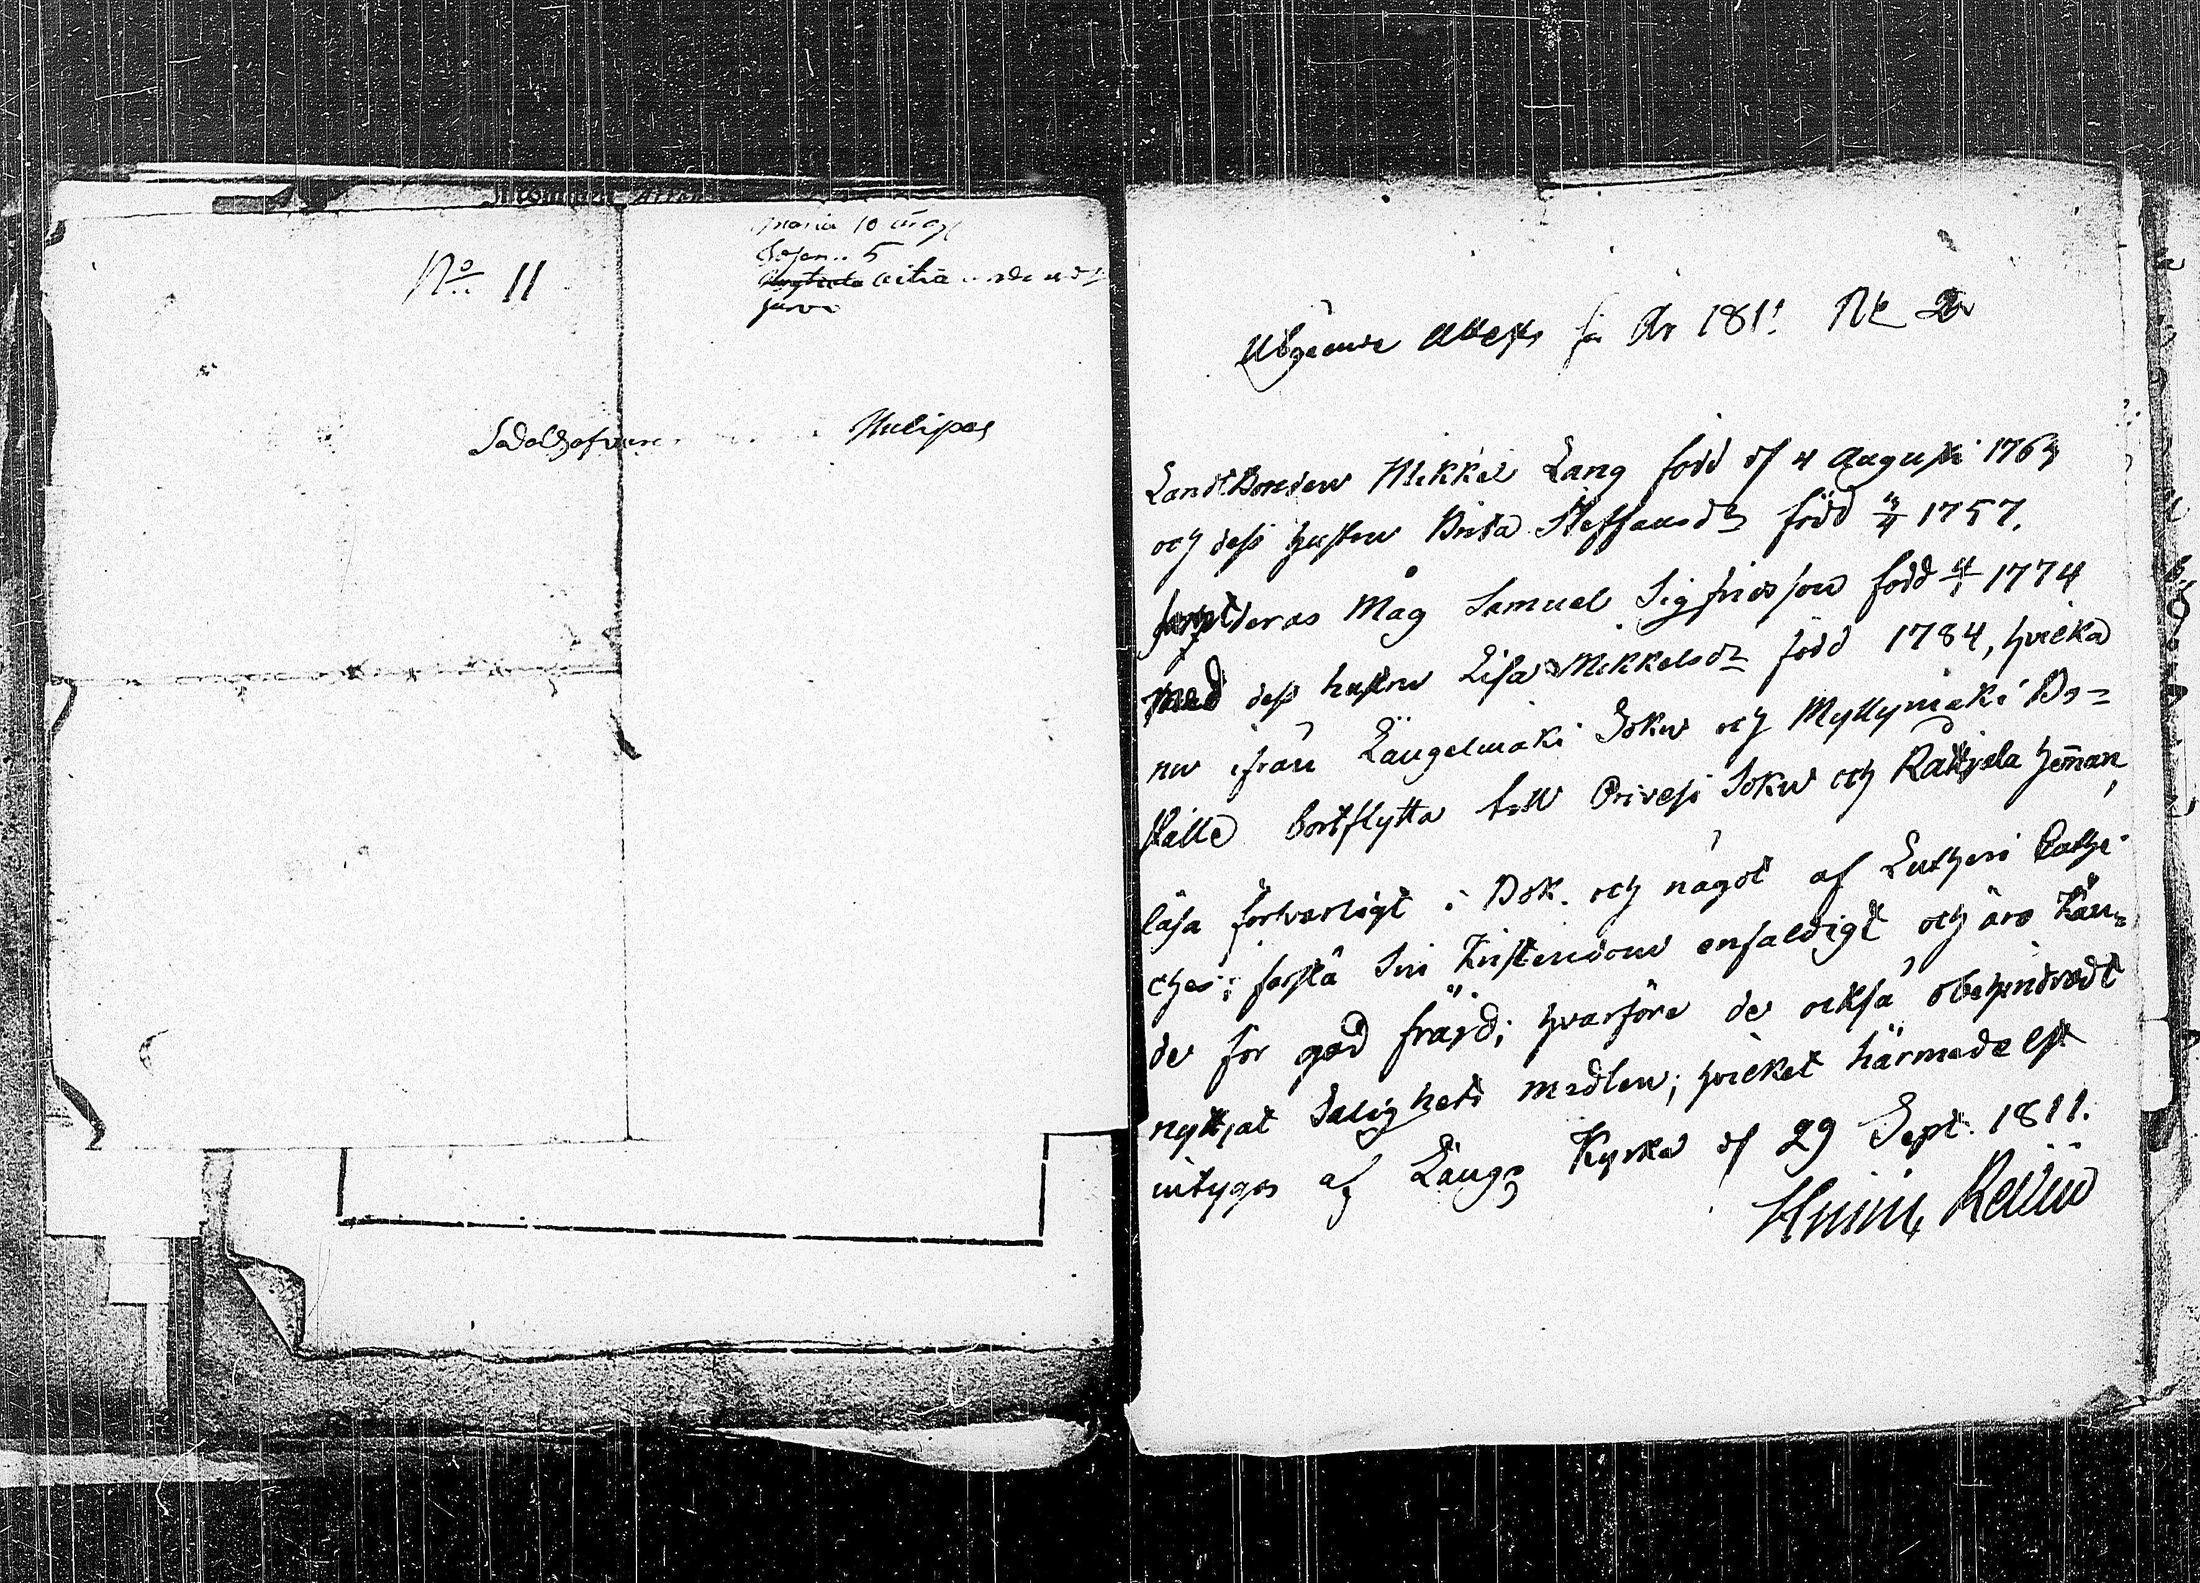 No 11
Maria 10 år
Josef .. 5
Sadelhofvare
År 1811 No 2
Landtbonden Mikkel Lang född d 4 Augusti 1764
och dess hustru Brita Steffansdr född 1757.
samt deras Måg Samuel Sigfridsson född 4/1 1774
med dess hustru Lisa Mikkelsdr född 1784, hvilka
nu ifrån Längelmäki Sokn och Myllymäki Bo=
ställe bortflytta till Orivesi Sokn och hemman,
läsa försvarligt i Bok. och något af Lutheri Cathe-
ches; förstå Sin Kristendom enfaldigt och äro kän=
de för god fräjd; hvarföre de också obehindradt
nyttjat Salighets medlen; hvilket härmedelst
intygas af Läng: Kyrka d 29 Sept. 1811.